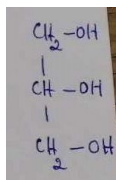 CH₂-OH
|
CH-OH
|
CH₂-OH